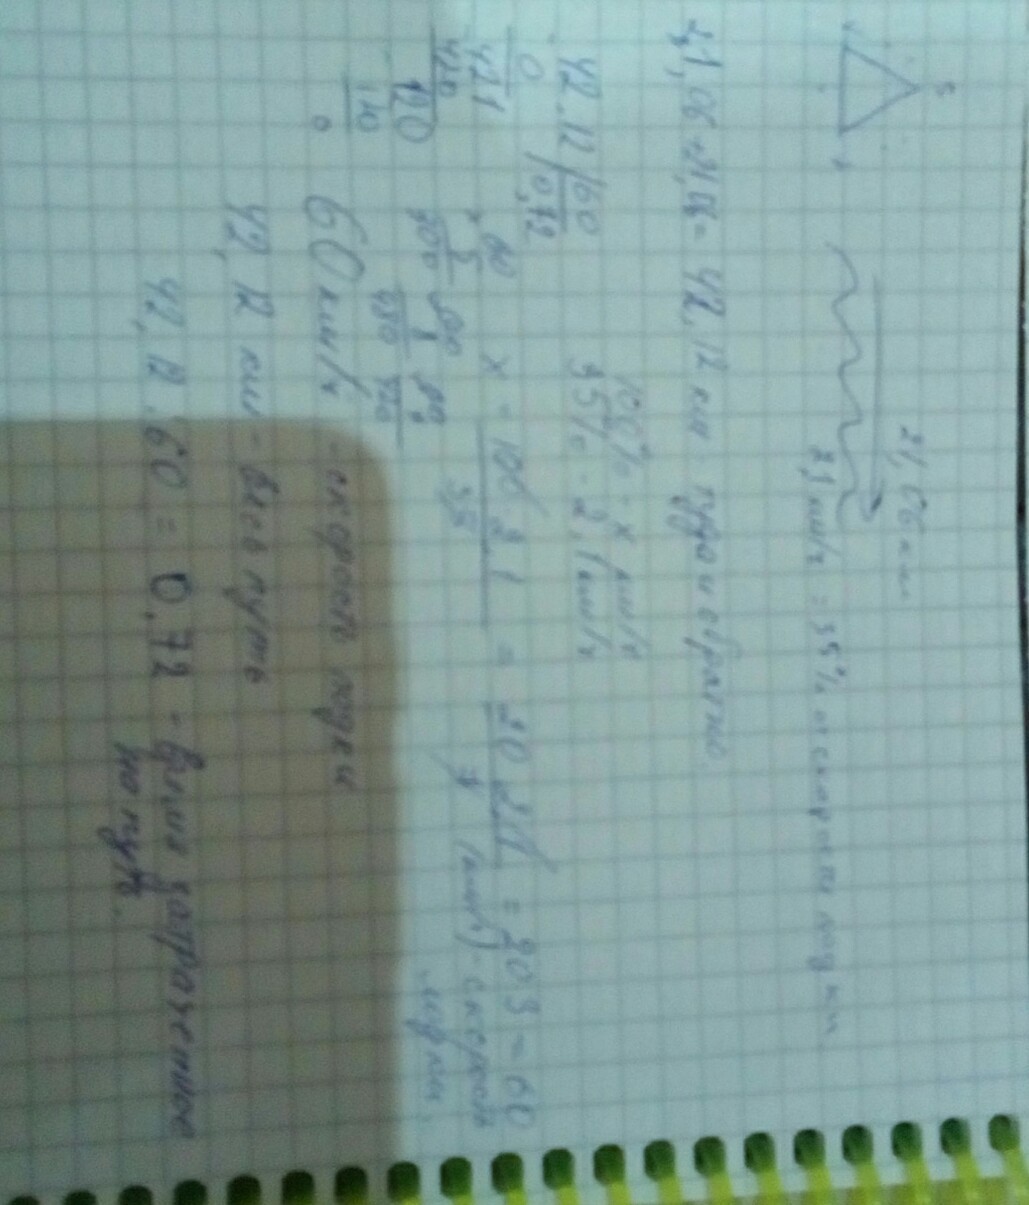 S
v
t
21,06 км
2,1 км/ч = 3,5% от скорости лодки
21,06 + 21,06 = 42,12 км туда и обратно
100% - x км/ч
3,5% - 2,1 км/ч
42,12 | 60
0,72
0
421
420
120
120
0
x = 100 2,1 = 20 21 = 20 3 = 60
3,5 7 (км/ч) - скорость
лодки.
60 км/ч - скорость лодки
42,12 км - весь путь
42,12 : 60 = 0,72 - время затраченное
на путь.